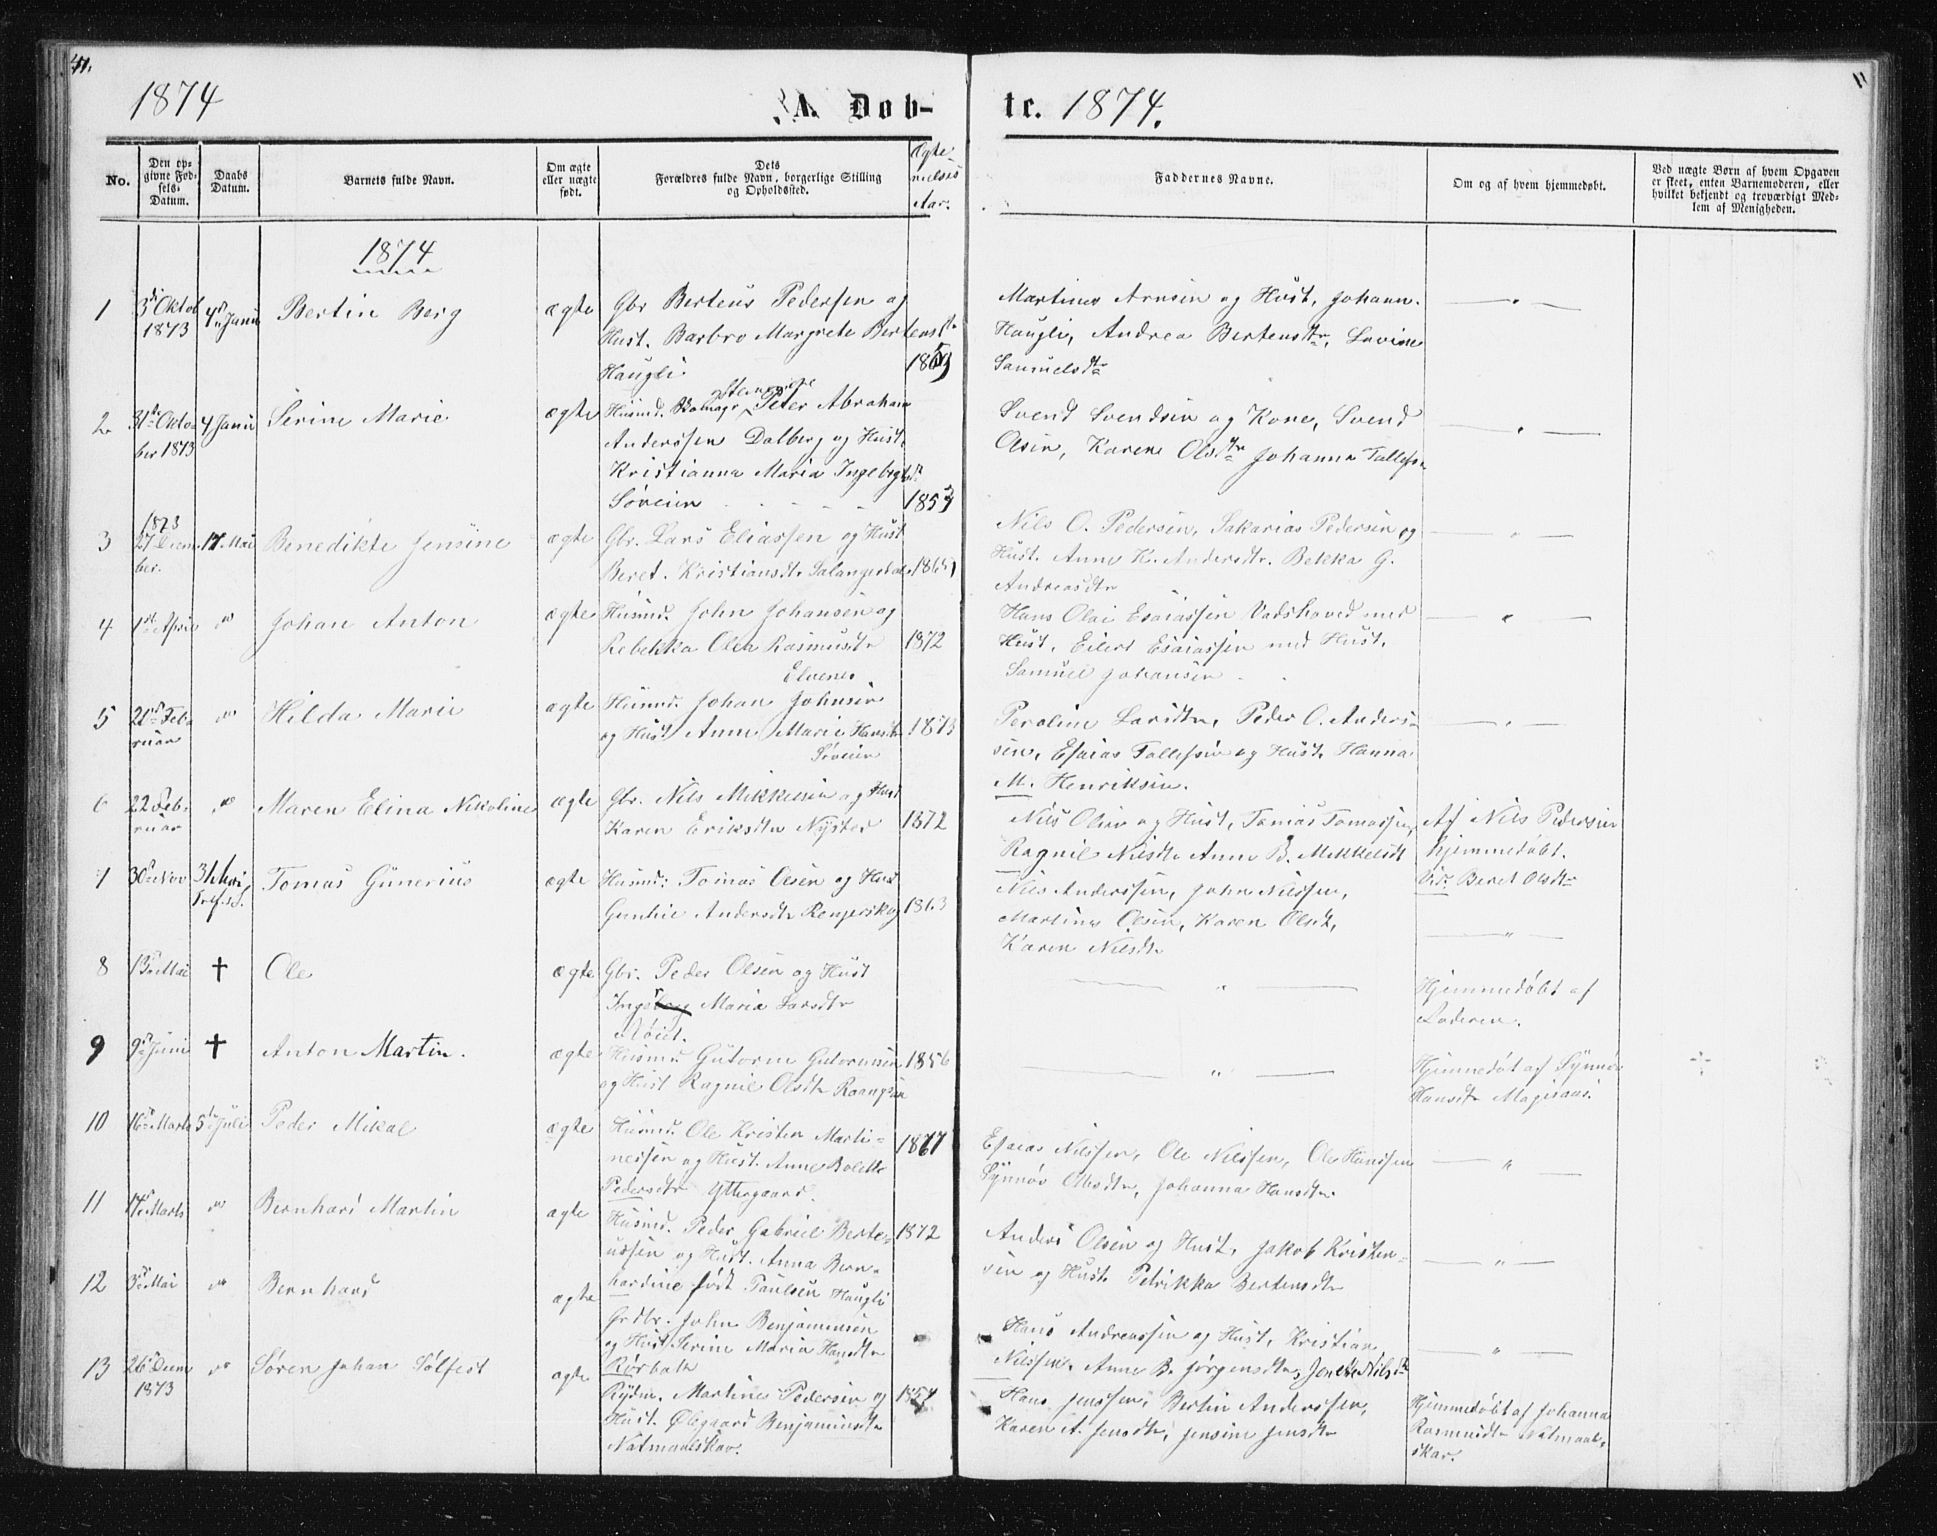 11.
11
1874
A. Døb-
te. 1874.
No.
Den op-
givne Fød-
sels-
Datum.
Daabs
Datum.
Barnets fulde Navn.
Om ægte
eller uægte
født.
Dets
Forældres fulde Navn, borgerlige Stilling
og Opholdssted.
Aar.
Faddernes Navne.
Om og af hvem hjemmedøbt.
Ved uægte Børn af hvem Opgaven
er skeet, enten Barnemoderen, eller
hvilket bekjendt og troværdigt Med-
lem af Menigheden.
1874
1
3die Oktob
1873
4de Janu
Bertin Berg
ægte
Gbr Berteus Pedersen og
Hust. Barbro Margrete Bertensdtr
Haugli.
Martines Arnsen og Hust, Johan.
Haugli, Andrea Bertensdtr, Lavine
Samuelsdtr
2
31te Okto-
ber 1873
4 Janu
Serine Marie
ægte
Husmd. Peter Abraham
Anderssen Dalberg og Hust.
Kristianna Maria Ingebrgtsdtr
Søveien
1853
Svend Svendsen og Kone, Svend
Olsen, Karen Olsdtr Johanna Tollefsn
3
1873
27 Decem-
ber.
17 Mai
Benedikte Jensine
ægte
Gbr. Lars Eliassen og Hust
Beret Kristiansdtr Salangsdal
Nils O. Pedersen, Sakarias Pedersen og
Hust. Anne K. Andersdtr. Bekka G.
Andreasdtr
4
1ste April
do
Johan Anton
ægte
Husmd. John Johansen og
Rebekka Olea Rasmusdtr
Elvenes
1872
Hans Olai Esaiassen Vadshaved med
Hust, Eilert Esaiassen med Hust.
Samuel Johansen
5
20de Feb-
ruar
do
Hilda Marie
ægte
Husmd. Johan Johnsen
og Hust Anne Marie Hansdtr
Søveien
1873
Peroline Larsdtr, Peder O. Anders-
sen, Esaias Tollefsen og Hust. Hanna
M. Henriksen.
6
22 Feb-
ruar
do
Maren Elina Nikoline
ægte
Gbr. Nils Mikkelsen og Hust
Karen Eriksdtr Nysted
1872
Nils Olsen og Hust, Tomas Tomassen,
Ragnil Nilsdtr Anne B. Mikkelsdt
Af Nils Pedersen
hjemmedøbt.
Vid. Beret Olsdtr
7
30te Nov
31 Mai
Tomas Gunerius
ægte
Husmd: Tomas Olsen og Hust
Andersdtr
1863
Nils Anderssen, John Nilssen,
Martinus Olsen, Karen Olsdt,
Karen Nilsdtr
8
13de Mai
†
Ole
ægte
Gbr. Peder Olsen og Hust
Maria Larsdtr
Hjemmedøbt af
Faderen.
9
9de Juni
†
Anton Martin.
ægte
Husmd Gutorm Gutormsen
og Hust Ragnil Olsdtr
1856
Hjemmedøbt af Synnøv
Hansdtr
10
16de Marts
5te Juli
Peder Mikal
ægte
Husmd. Ole Kristen Marti-
nessen og Hust. Anne Bolette
Pedersdtr Yttergaard.
1867
Esaias Nilssen, Ole Nilssen, Ole Hanssen
Synnøv Olsdtr, Johanna Hansdtr.
11
14de Marts
do
Bernhard Martin
ægte
Husmd. Peder Gabriel Berte-
ussen og Hust. Anna Bern-
hardine født Paulsen Haugli
1872
Anders Olsen og Hust, Jakob Kristen-
sen og Hust. Petrikka Bertensdtr
12
3de Mai
do
Bernhard
ægte
Grdbr. John Benjaminsen
og Hust Serine Maria Hansdtr
Rørbakk
Hans Andreassen og Hust, Kristian
Nilssen, Anne B. Jørgensdtr, Jonette Nilsdtr
13
26 Decem
1873
do
Søren Johan Sølfest
ægte
Rydm. Martines Pedersen og
Hust. Olegaard Benjaminsdtr
Natmaalskar.
Hans Jenssen, Bertin Anderssen,
Karen A. Jensdtr, Jensine Jensdtr
Hjemmedøbt af Johanna
Rasmusdtr Natmaal-
skar.